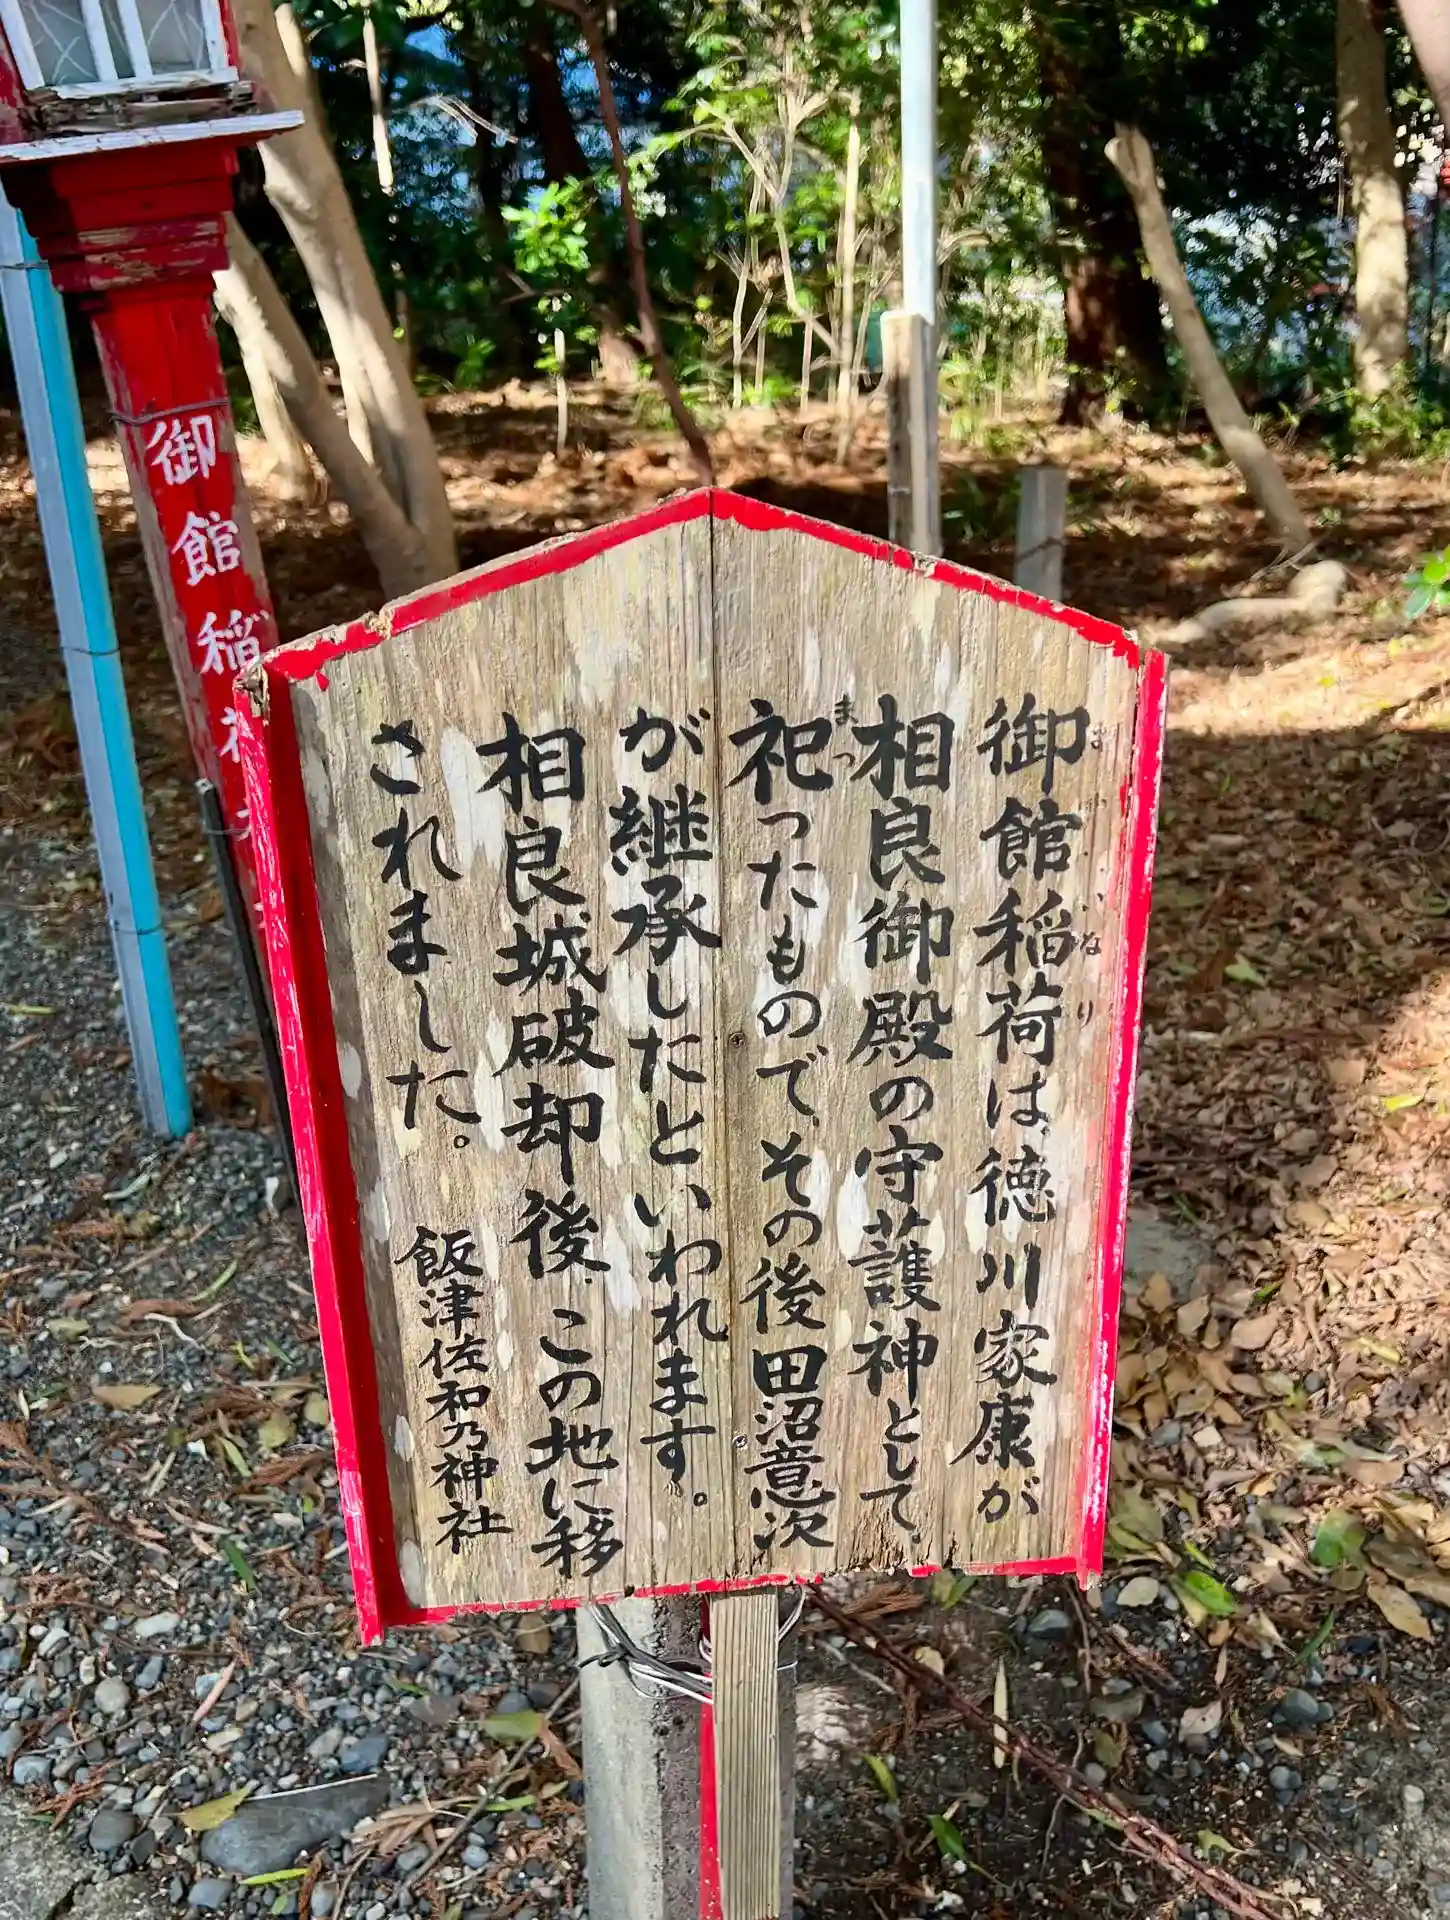 御館稲荷は、徳川家康が
相良御殿の守護神として、
祀ったもので、その後田沼意次
が継承したといわれます。
相良城破却後、この地に移
されました。
飯津佐和乃神社
まつ
いなり
御館稲荷